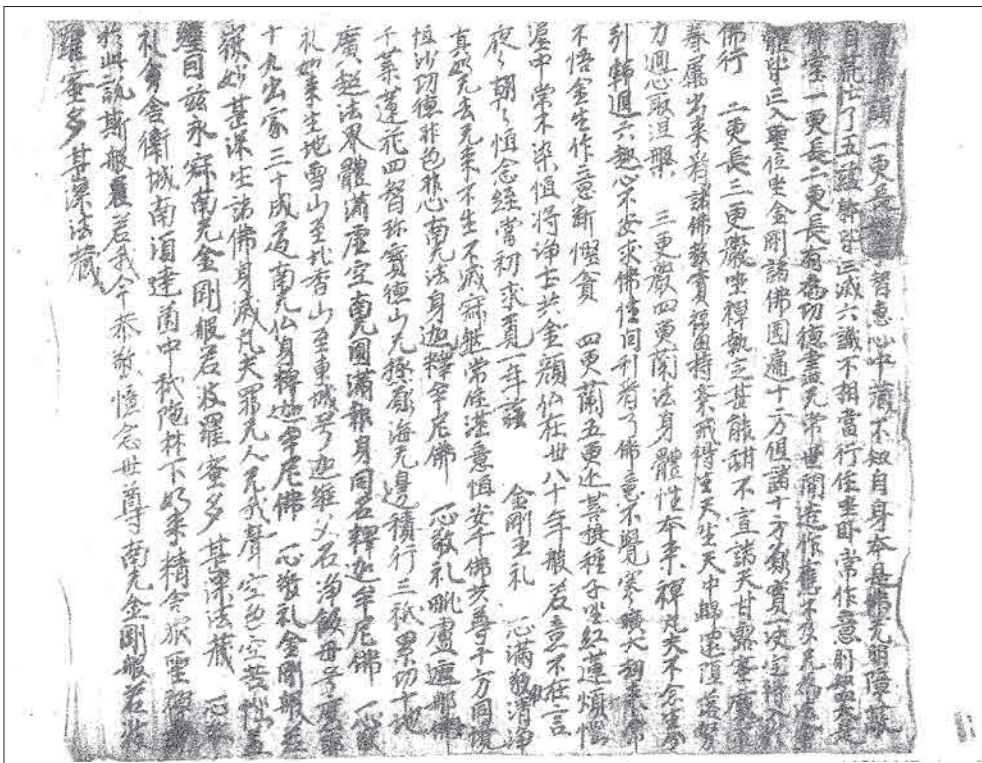 讚 一更長 智惠心中藏不知自身本是佛无明障蔽
自荒忙了五蘊 皆亡滅六識不相當行住坐卧常作意則知四大是
佛堂一更長二更長有為功德盡无常世間造作應不久无為法會
體皆亡入聖位坐金剛諸佛国遍十方但諸十方 貫一決定得入於
佛行 二更長三更嚴坐禅執定甚能甜不宣諸天甘露蜜魔軍
眷屬出来看諸佛教實福田持齋戒得生天生天中歸還墮落努
力迴心取涅槃 三更嚴四更蘭法身體性本来禪凡夫不念生分
別輪迴六趣心不安求佛性向裏看了佛意不覺寒曠大劫来常
不悟金生作意斷慳貪 四更蘭五更延菩提種子坐紅蓮煩惱
渥中常不染恒將淨土共金顔仏在世八十年般若意不在言
夜々朝々恒念經當初求覓一年證 金剛五礼 一心滿敬清淨
真如无去无来不生不滅寂然常住湛意恒安千佛共尊十方同讚
恒沙功德非色非心南无法身迦釋牟尼佛 一心敬礼毗盧遮那佛
千葉蓮花四智珎寶德山无極願海无邊積行三祇累功十地
廣超法界體滿虚空南无圓滿報身同名釋迦牟尼佛 一心敬
礼如来生地雪山至北香山至東城号迦維父名淨飯母号摩耶
十九出家三十成道南无仏身釋迦牟尼佛 一心敬礼金剛般若
微妙甚深生諸佛身滅凡夫罪无人无我聲空色空
空自兹永寂南无金剛般若波羅蜜多甚深法藏 一心
礼舍衛城南須達菌中秖陁林下如来精舍眾聖
於此說斯般若我今恭敬憶念世尊南无金剛般若波
羅蜜多甚深法藏